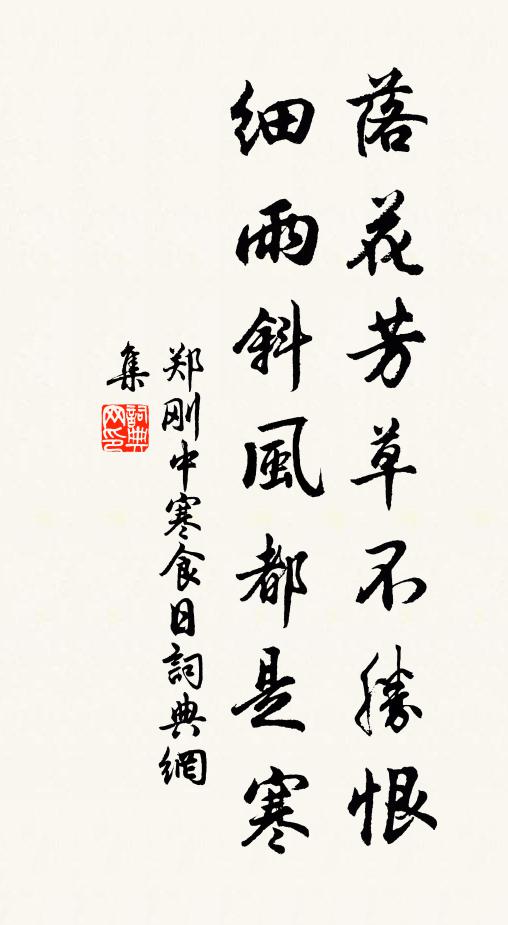 落花芳草不勝恨
細雨斜風都是寒
郑刚中寒食日詞典網
集
詞典網印